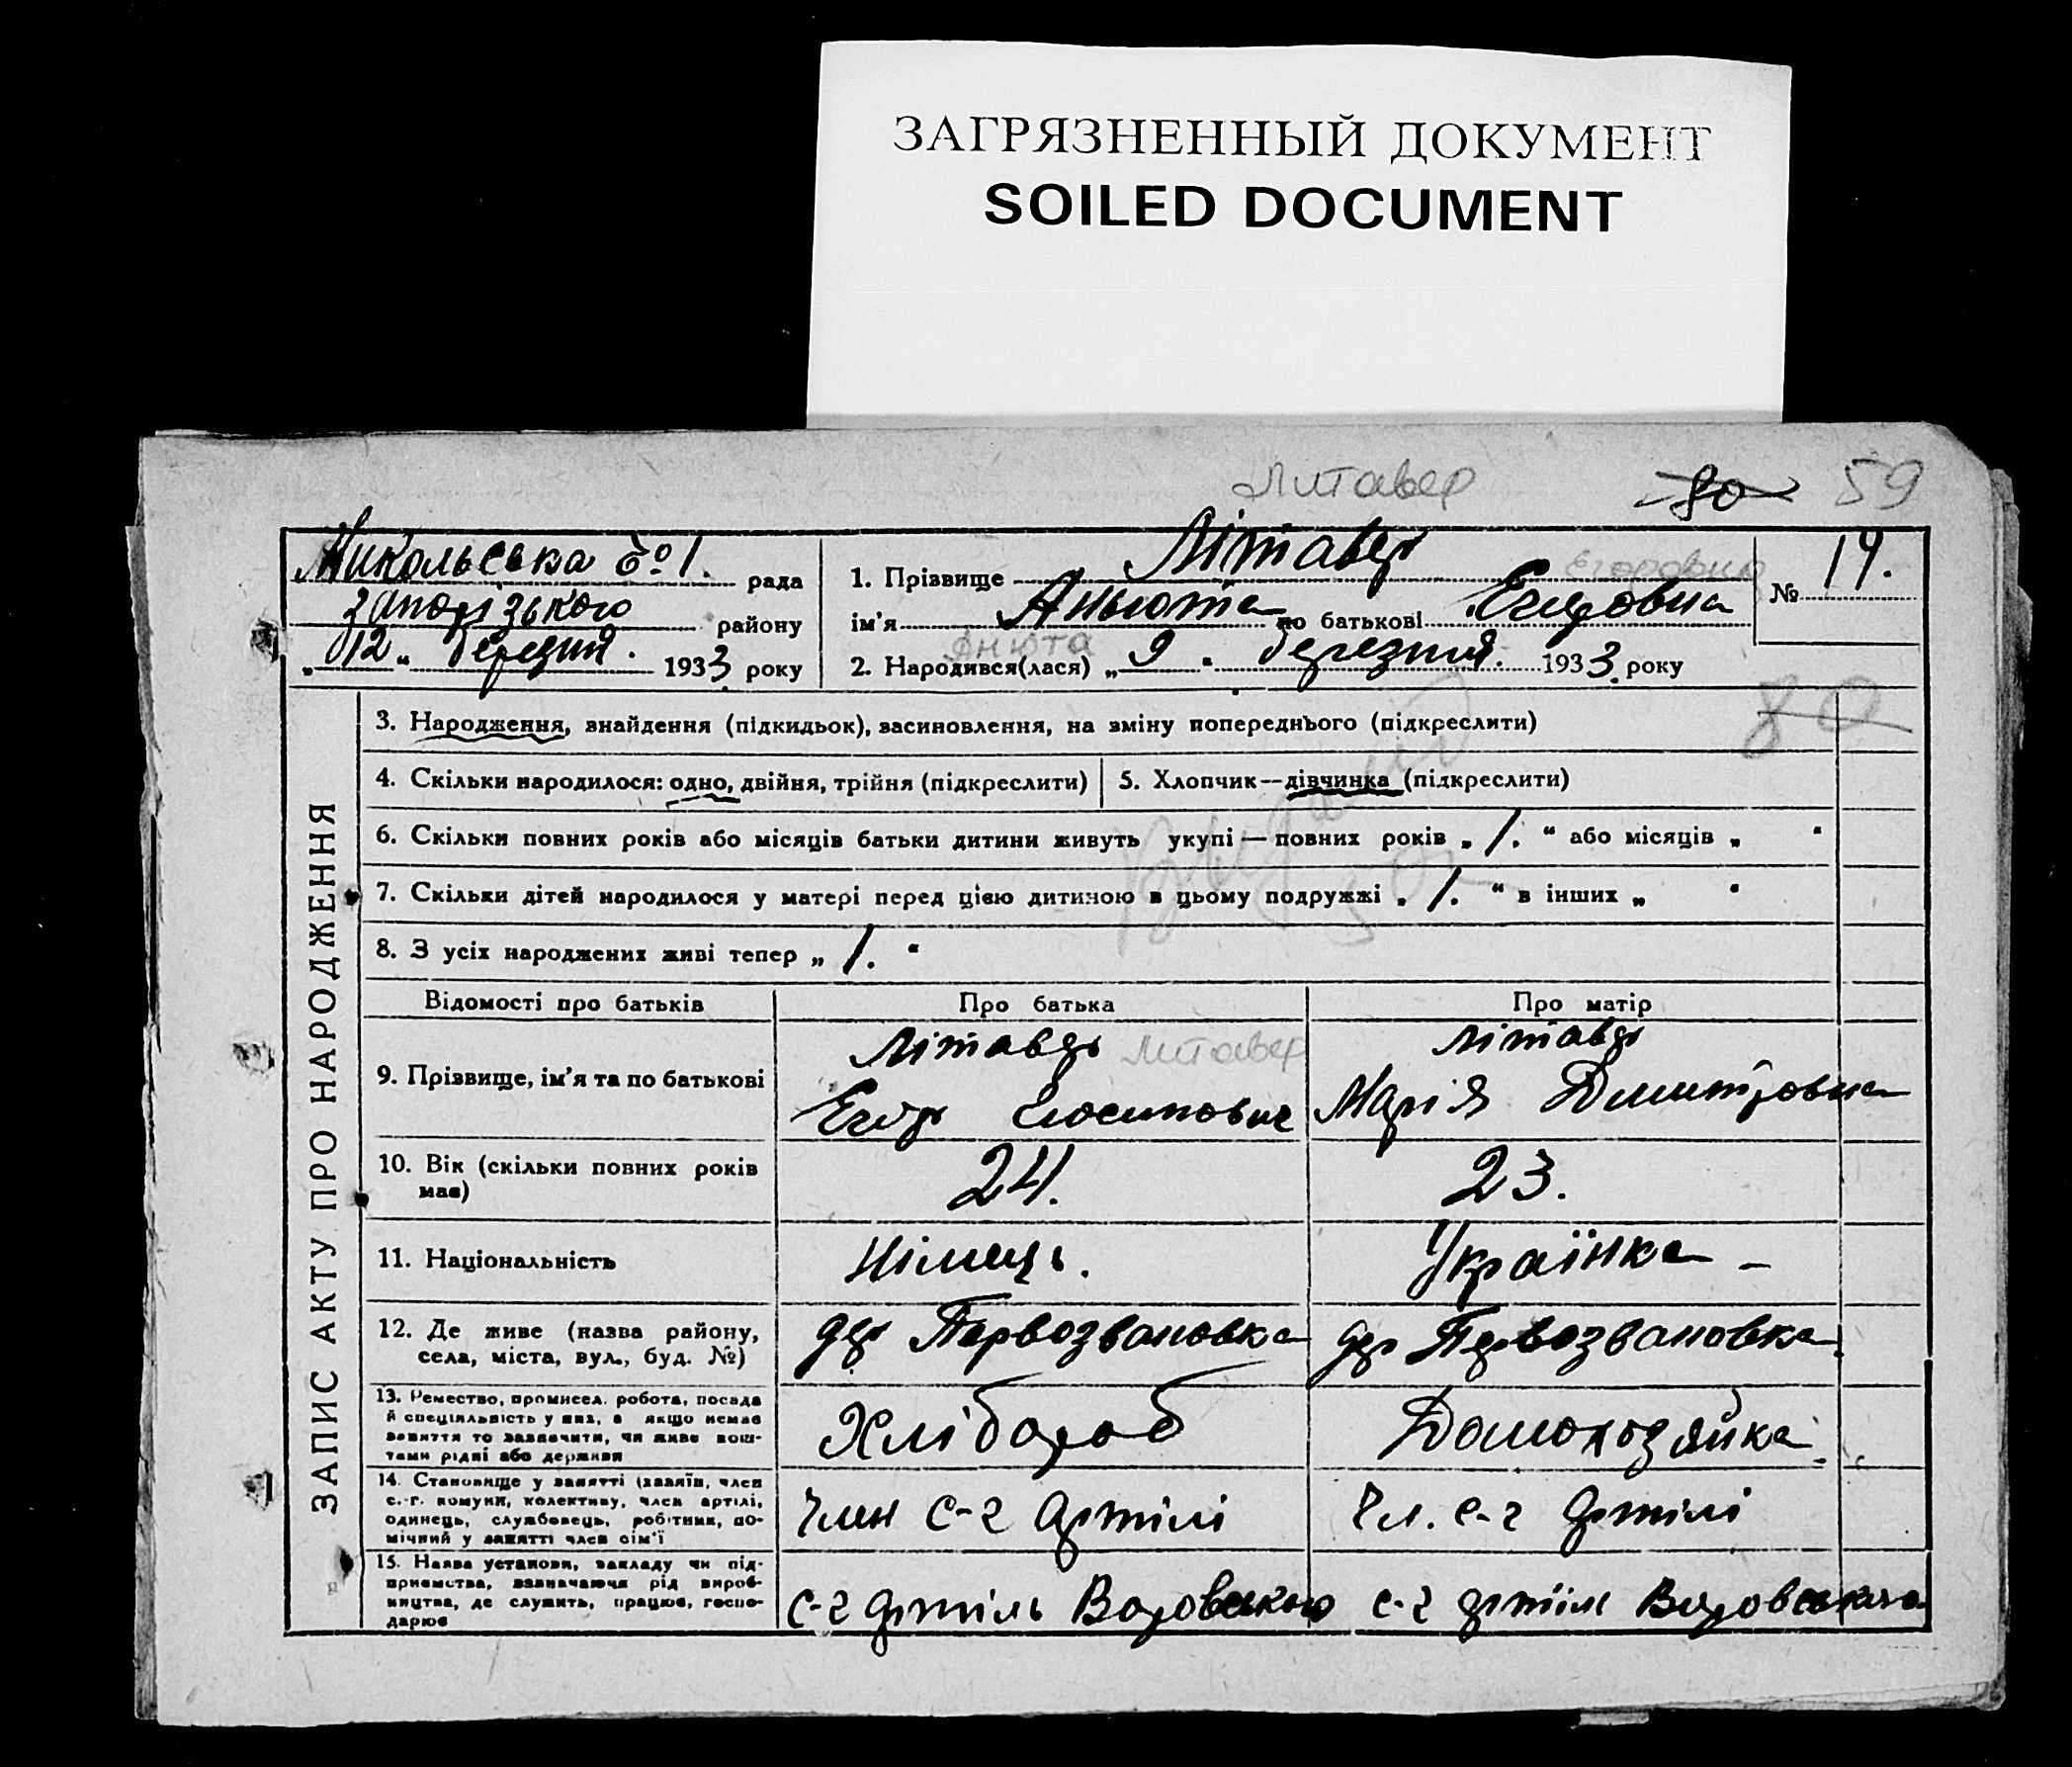 ЗАГРЯЗНЕННЫЙ ДОКУМЕНТ
SOILED DOCUMENT
Литавер
80 59
Микольська №1. рада
Запорізького району
„12“ березня. 1933 року
1. Прізвище Літавер
ім'я Аньюта по батькові Егоровна
Егоровна
Анюта
2. Народився(лася) „9“ березня. 1933. року
№ 14.
80
ЗАПИС АКТУ ПРО НАРОДЖЕННЯ
3. Народження, знайдення (підкидьок), засиновлення, на зміну попереднього (підкреслити)
4. Скільки народилося: одно, двійня, трійня (підкреслити)
5. Хлопчик—дівчинка (підкреслити)
6. Скільки повних років або місяців батьки дитини живуть укупі — повних років „1.“ або місяців „ “
7. Скільки дітей народилося у матері перед цією дитиною в цьому подружжі „1.“ в інших „ “
8. З усіх народжених живі тепер „1.“
Відомості про батьків
Про батька
Про матір
9. Прізвище, ім'я та по батькові
Літавер Литавер
Егор
Літавер
Марія Дмитровна
10. Вік (скільки повних років має)
24.
23.
11. Національність
Німець.
Українка –
12. Де живе (назва району, села, міста, вул., буд. №)
дер Первозвановка
дер Первозвановка.
13. Ремество, промисел, робота, посада й спеціяльність у них, а якщо немає заняття то зазначити, чи живе коштами рідні або держави
Хлібороб
Домохозяйка
14. Становище у занятті (хазяїн, член с.-г. комуни, колективу, член артілі, одинець, службовець, робітник, помічний у занятті член сім'ї
Член с-г артілі
Чл. с-г артілі
15. Назва установи, закладу чи підприємства, зазначаючи рід виробництва, де служить, працює, господарює
с-г артіль Воровського
с-г артіль Воровського